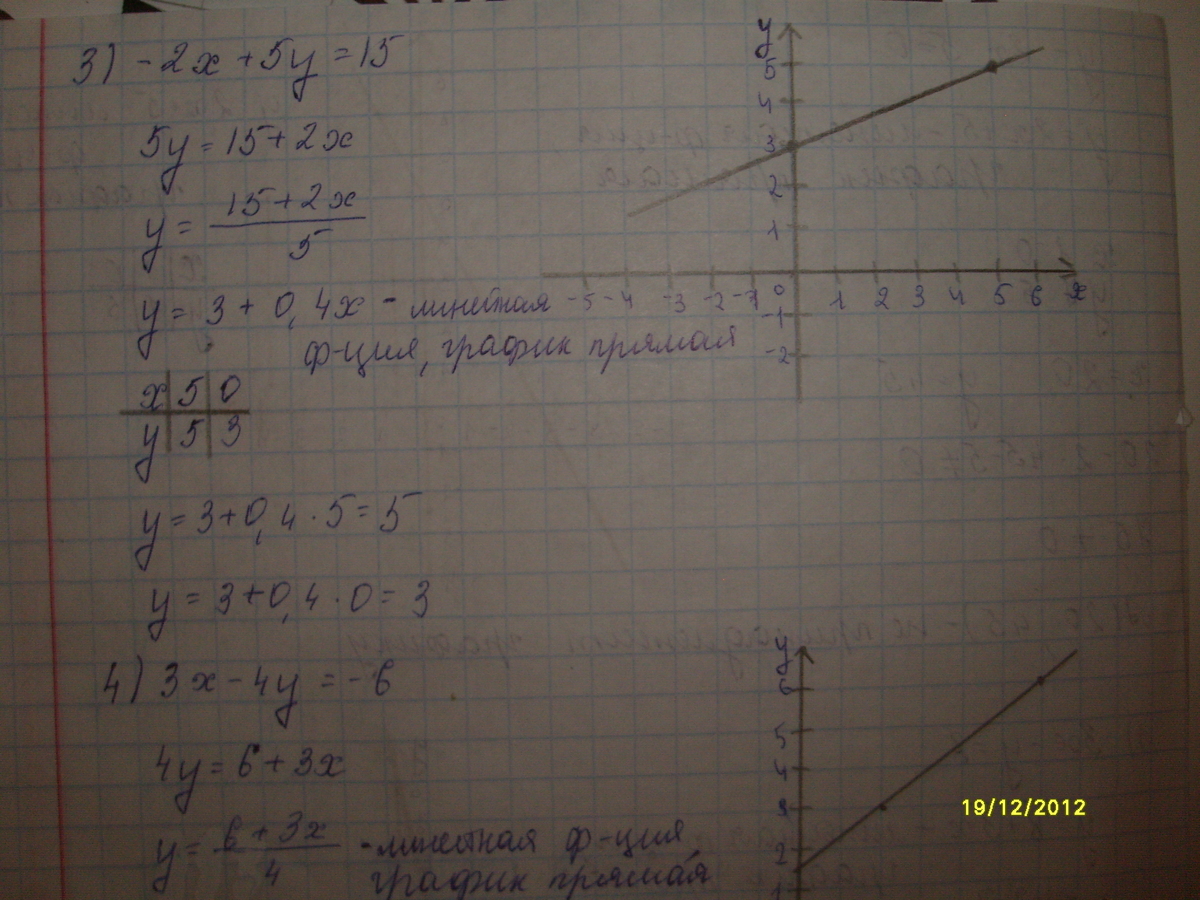 3) -2x + 5y = 15
5y = 15 + 2x
y = (15 + 2x)/5
y = 3 + 0,4x - линейная
ф-ция, график прямая
x | 5 | 0
y | 5 | 3
y = 3 + 0,4 · 5 = 5
y = 3 + 0,4 · 0 = 3
y
5
4
3
2
1
-5 -4 -3 -2 -1 0 1 2 3 4 5 6 x
-1
-2
4) 3x - 4y = -6
4y = 6 + 3x
y = (6 + 3x)/4 - линейная ф-ция
график прямая
y
6
5
4
3
2
1
19/12/2012